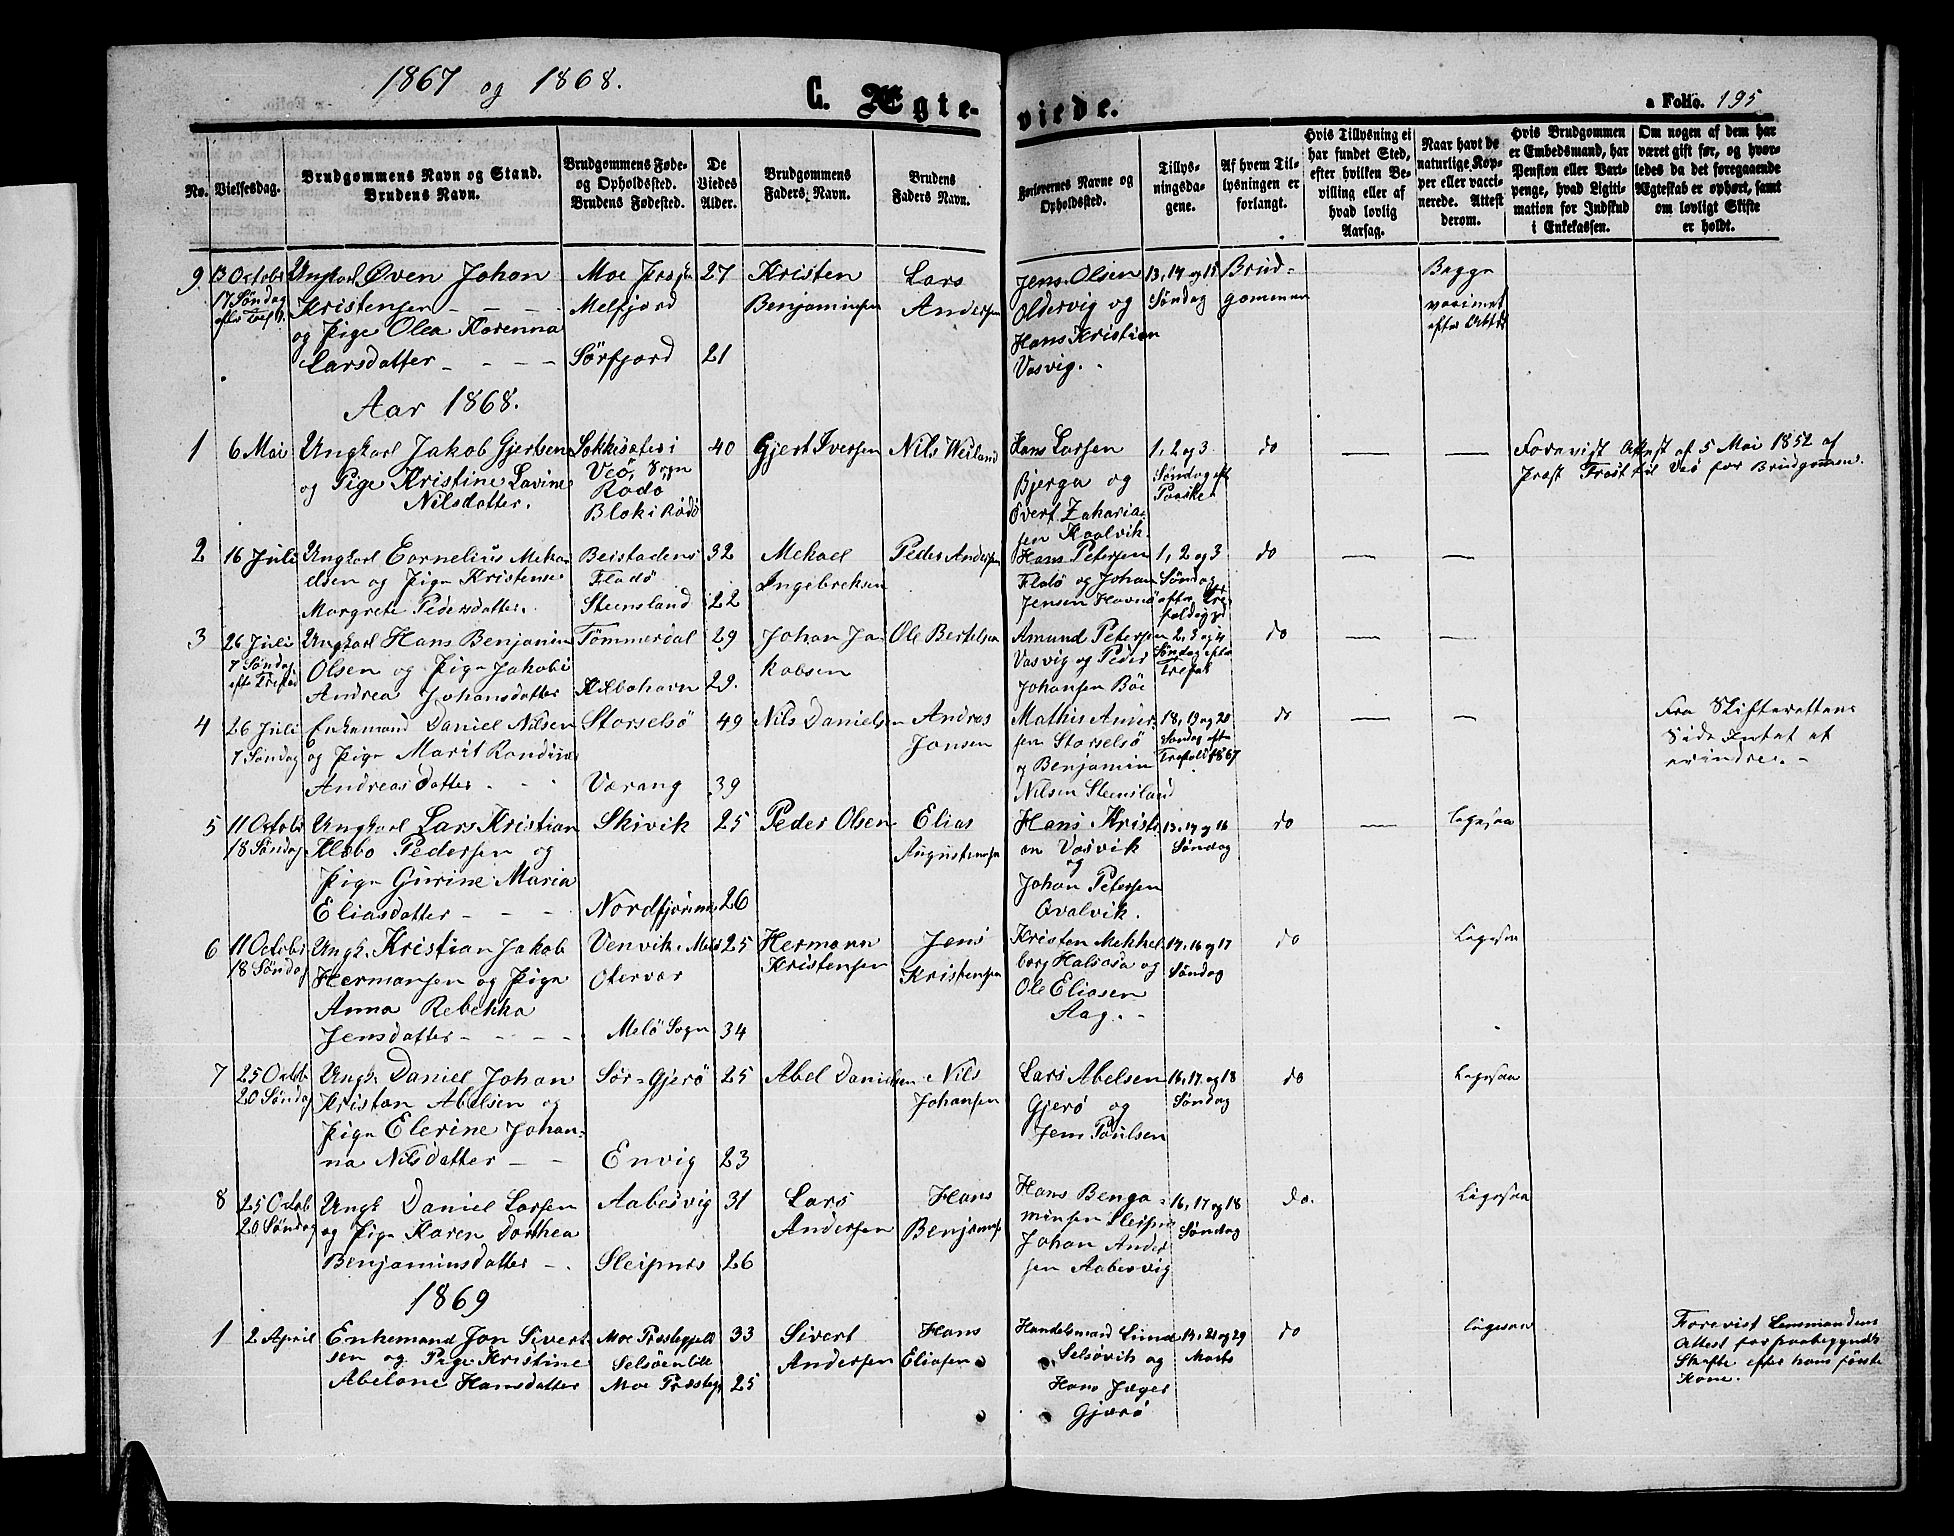 1867 og 1868.
C. Ægte-
viede.
a Folio. 195
No.
Vielsesdag.
Brudgommens Navn og Stand.
Brudens Navn.
Brudgommens Føde-
og Opholdssted.
Brudens Fødested.
De
Viedes
Alder.
Brudgommens
Faders Navn.
Brudens
Faders Navn.
Forlovernes Navne og
Opholdssted.
Tillys-
ningsda-
gene.
Af hvem Til-
lysningen er
forlangt.
Hvis Tillysning ei
har fundet Sted,
efter hvilken Be-
villing eller af
hvad lovlig
Aarsag.
Naar havt de
naturlige Kop-
per eller vacci-
nerede. Attest
derom.
Hvis Brudgommen
er Embedsmand, har
Pension eller Vart-
penge, hvad Ligti-
mation for Indskud
i Enkekassen.
Om nogen af dem har
været gift før, og hvor-
ledes da det foregaaende
Ægteskab er ophørt, samt
om lovligt Skifte
er holdt.
9
13 Octobr
17 Søndag
Ungkarl Øven Johan
Kristensen
og Pige Olea Karenna
Larsdatter
Moe
Melfjord
Sörfjord
27
21
Kristen
Benjaminsen
Lars
Andersen
Jens Olsen
Oldervig og
Hans Kristian
Vasvig.
13, 14 og 15
Søndag
Brud-
gommen
Begge
Aar 1868.
1
6 Mai
Ungkarl Jakob Gjertsen
og Pige Kristine Lavine
Nilsdatter.
Veö, Sogn
Rödö
Blok i Rödö
40
Gjert Iversen
Nils Weiland
Hans Larsen
Bjerga og
Evert Zakaria-
sen
1, 2 og 3
Søndag eft
Paaske
do
Forevist Attest af 5 Mai 1852 af
Prost Frost til Veö for Brudgommen.
2
16 Juli
Ungkarl Cornelius Meka-
elsen og Pige Kristense
Margrete Pedersdatter.
Flodö
Steensland
32
22
Mekael
Ingebreksen
Peder Andersen
Hans Petersen
Flodö og Johan
Jensen Havnö
1, 2 og 3
Søndag
do
3
26 Juli
7 Søndag
efter Trefold
Ungkarl Hans Benjamin
Olsen og Pige Jakobi
Andrea Johansdatter
Tömmerdal
29
29.
Johan Ja-
kobsen
Ole Bertelsen
Amund Petersen
Vasvig og Peder
Johansen Böe
2, 3 og 4
Søndag efter
Trefol
do
4
26 Juli
7 Søndag
Enkemand Daniel Nilsen
og Pige Marit
Andreasdatter
Storselsö
Værang
49
39
Nils Danielsen
Andreas
Jonsen
Mathis
sen Storselsö
og Benjamin
Nilsen Steensland
18, 19 og 20
Søndag eft
Trefold 1867
do
Fra Skifterettens
Side Intet at
erindre.
5
11 Octobr
18 Søndag
Ungkarl Lars Kristian
Pedersen og
Pige Gurine Maria
Eliasdatter
Skivik
Nordfjorden
25
26
Peder Olsen
Elias
Augustinusen
Hans Kristi-
an Vasvik
og
Johan Petersen
Qvalvik.
13, 14 og 16
Søndag
do
Ligesaa
6
11 Octobr
18 Søndag
Ungk. Kristian Jakob
Hermansen og Pige
Anna Rebekka
Jensdatter
Venvik i Melö
Otervær
Melö Sogn
25
34
Hermann
Kristensen
Jens
Kristensen
Kristen Mekkel-
borg Halsosa og
Ole Eliasen
Aag.
14, 16 og 17
Søndag
do
Ligesaa
7
25 Octob
20 Søndag
Ungk. Daniel Johan
Kristan Abelsen og
Pige Elerine Johan-
na Nilsdatter
Sör-Gjerö
Envig
25
23
Abel Danielsen
Nils
Johansen
Lars Abelsen
Gjerö og
Jens Poulsen
16, 17 og 18
Søndag
do
Ligesaa
8
25 Octob
20 Søndag
Ungk Daniel Larsen
og Pige Karen Dorthea
Benjaminsdatter
Aabesvig
Sleipnes
31
26
Lars
Andersen
Hans
Benjaminsen
Hans Benja-
minsen Sleipnes
Johan Ander
sen Aabesvig
16, 17 og 18
Søndag
do.
Ligesaa
1869
1
2 April
Enkemand Jon Sivert-
sen og Pige Kristine
Abelone Hansdatter
Moe Præstegjeld
Selsöen lille
Moe Præsteg.
33
25
Sivert
Andersen
Hans
Eliasen
Handelsmand Lund
Selsövik og
Hans Jæger
Gjærö
19, 21 og 29
Marts
do
Ligesaa
Forevist Lensmandens
Attest for paabegyndt
Skifte efter hans første
Kone.